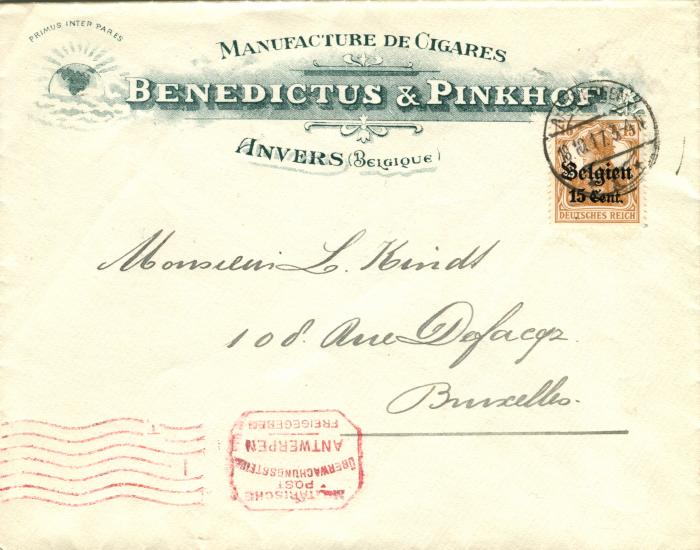 PRIMUS INTER PARES
MANUFACTURE DE CIGARES
BENEDICTUS & PINKHOF
ANVERS (BELGIQUE)
Belgien
15 Cent.
DEUTSCHES REICH
Monsieur L. Kindt
108. Rue Defacqz
Bruxelles.
MILITÄRISCHE
POST
ÜBERWACHUNGSSTELLE
ANTWERPEN
FREIGEGEBEN